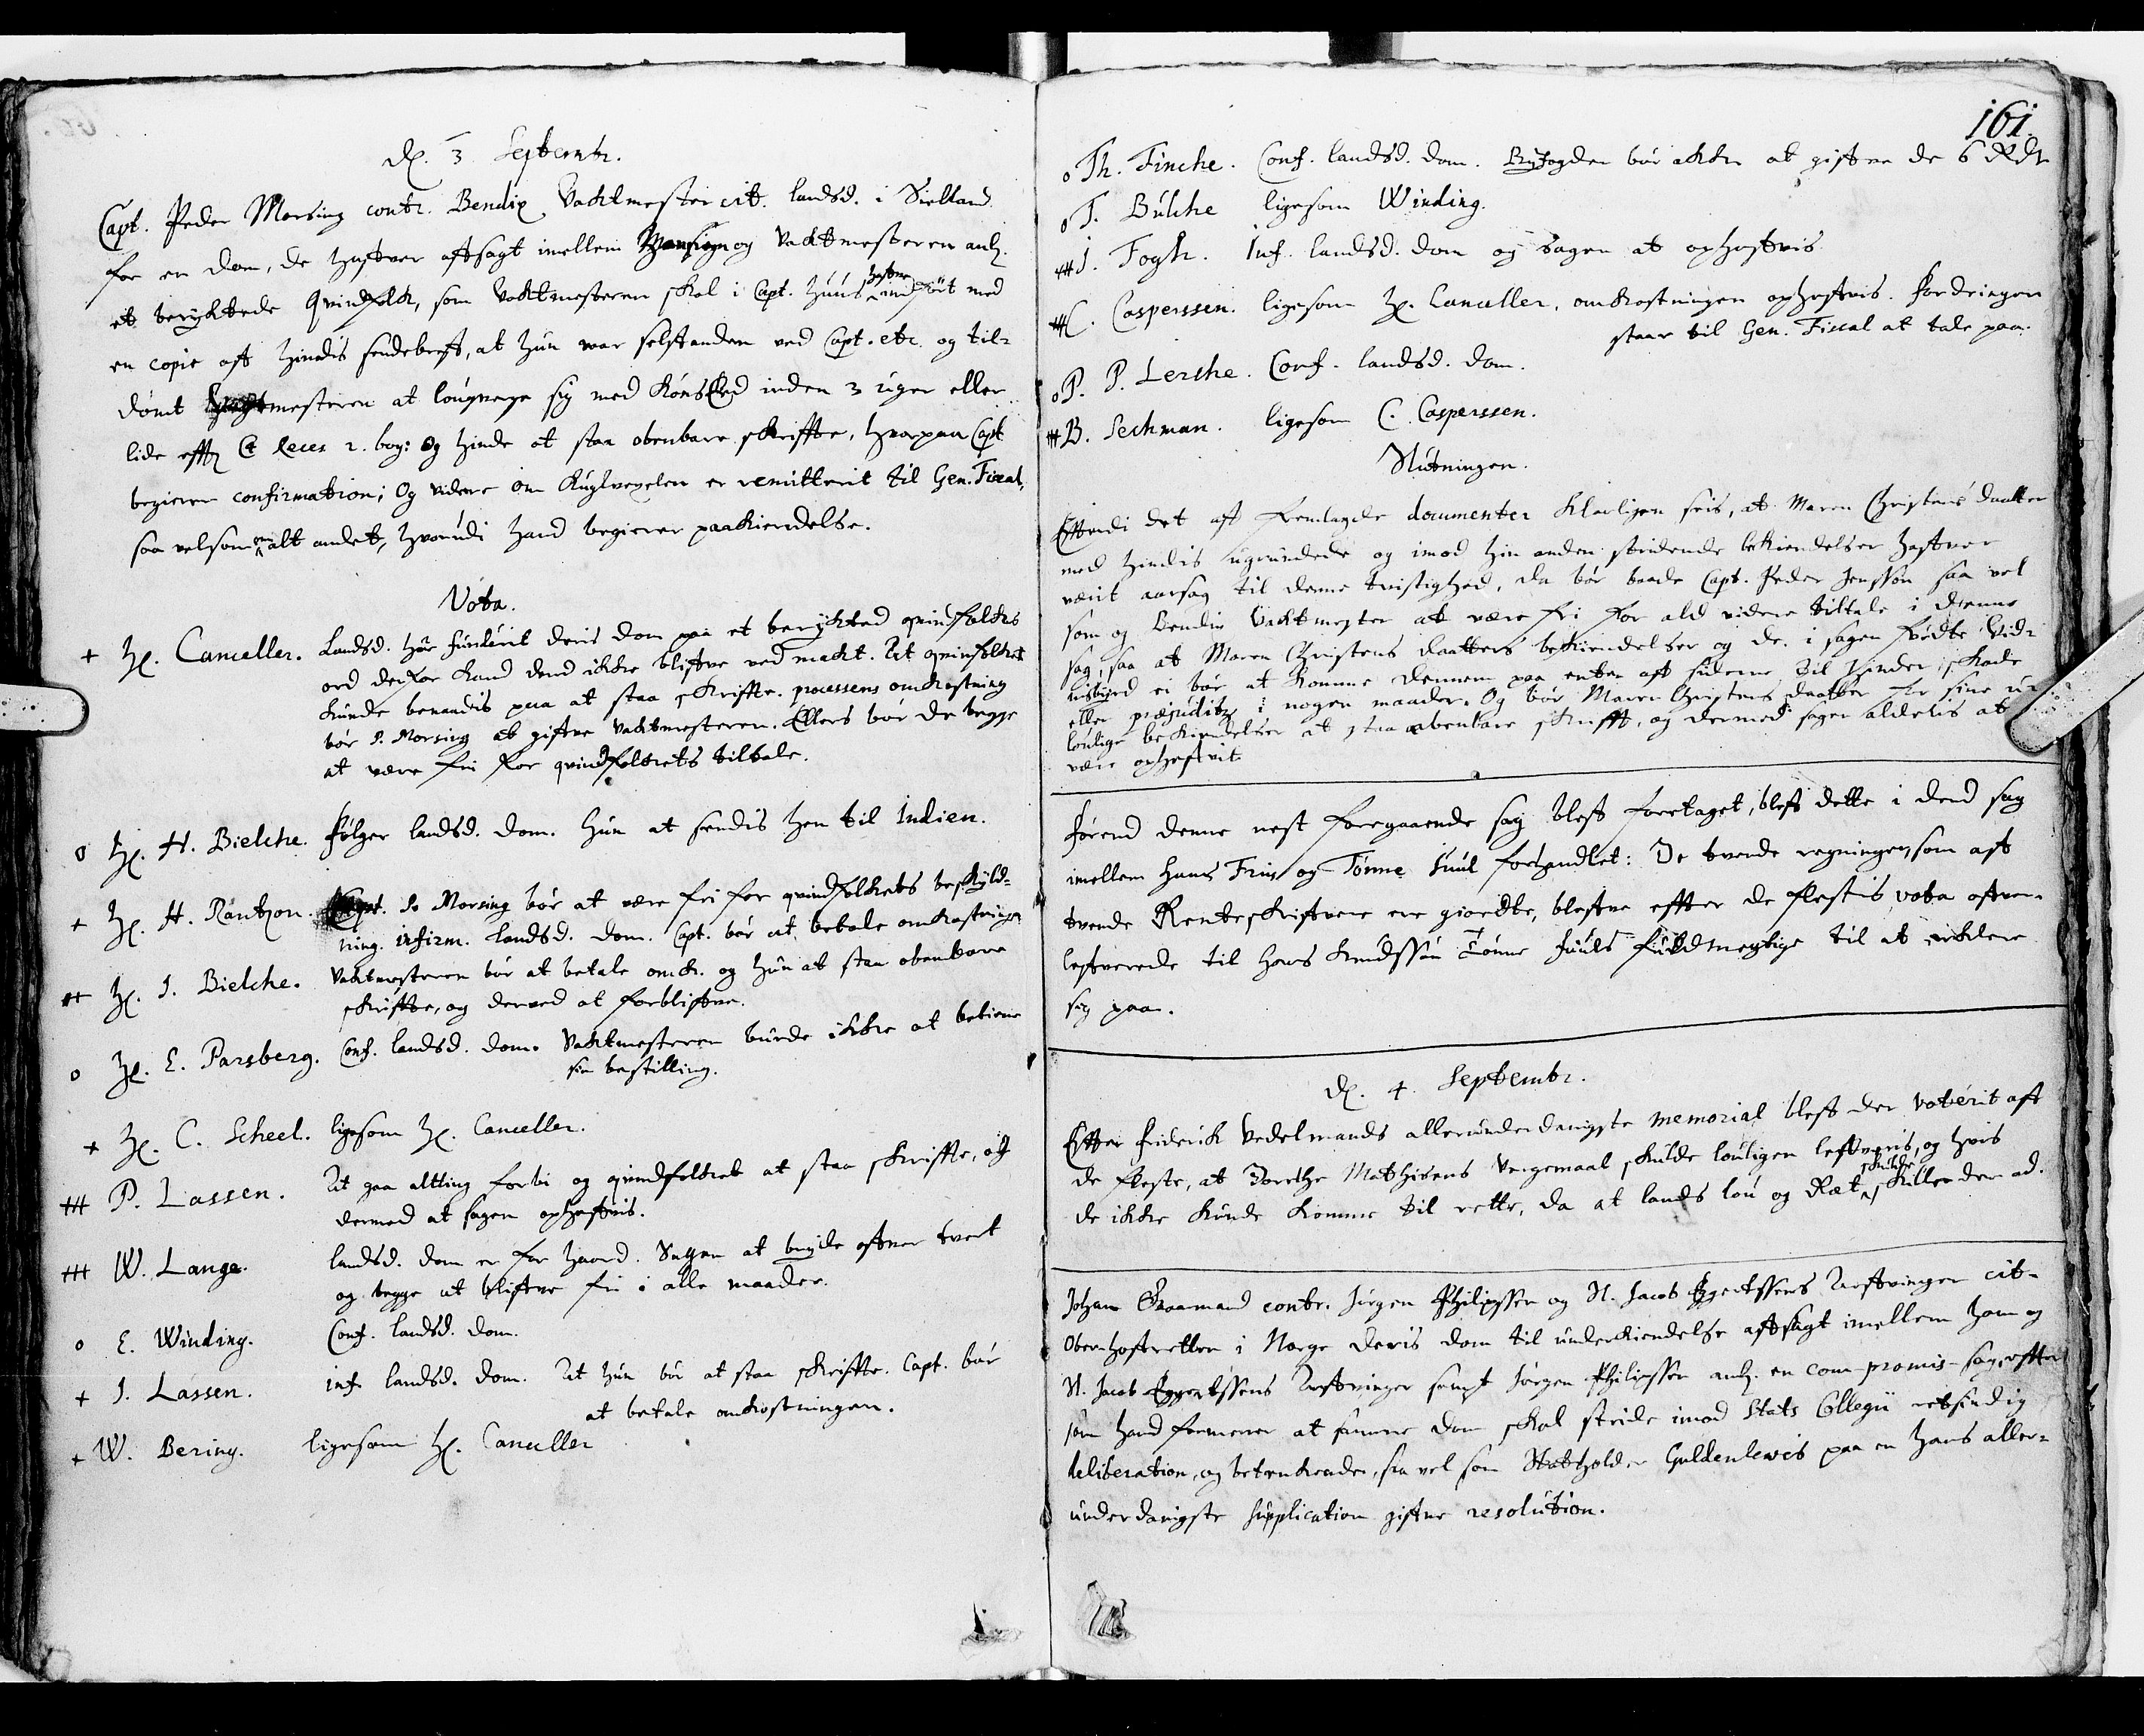 d. 3 Septembr.
Capt. Peder Morsing contr. Bendix Vaktmester cit. landsd. i Sielland
for en dom, de hafver afsagt imellem Morsing og Vaktmesteren anl.
et beryktede qvindfolk, som Vaktmesteren skal i Capt. huus hafve indført med
en copie aff hindis sendebreff, at hun var besofvanden ved Capt. etc. og til-
dømt Vaktmesteren at lougverge sig med Køns Eed inden 3 uger eller
lide efter Reces 2. bog: og hinde at staa obenbare skriffte, hvorpaa Capt
begierer confirmation; Og videre om Kuglvexelen er remitterit til Gen. Fiscal,
saa velsom om alt andet, hvorudi hand begierer paakiendelse.
Vota.
+ H. Canceller. Landsd. har funderit deris dom paa et berykted qvindfolkes
ord derfor kand dend ikke blifve ved makt. Et qvinfolket
kunde benaadis paa at staa skriffte. processens omkostning
bør P. Morsing at gifve Vaktmesteren. Ellers bør de begge
at være fri for qvindfolkets tiltale.
o H. H. Bielche. følger landsd. dom. hun at sendis hen til Indien.
+ H. H. Rantzon. Capt. P. Morsing bør at være fri for qvindfolkets beskyld-
ning. infirm. Landsd. dom. Capt. bør at betale omkostningen
++ H. J. Bielche. Vaktmesteren bør at betale omk. og hun at staa obenbare
skriffte, og derved at forblifve.
o H. E. Parsberg. Conf. landsd. dom. Vaktmesteren burde ikke at betiene
sin bestilling.
+ H. C. Scheel. ligesom H. Canceller.
+++ P. Lassen. At gaa altting forbi og qvindfolket at staa skriffte, og
dermed at sagen ophæfvis.
+++ W. Lange. landsd. dom er for haard. Sagen at bryde ofver tvert
og begge at blifve fri i alle maader.
o E. Winding. Conf. landsd. dom.
+ J. Lassen. inf. landsd. dom. At hun bør at staa skriffte. Capt. bør
at betale omkostningen.
+ W. Bering. ligesom H. Canceller
161.
o Th. Fincke. Conf. landsd. dom. Byfogden bør ikke at gifve de 6 Rdr
o T. Bülche ligesom Winding.
+++ J. Fogh. Inf. landsd. dom og sagen at ophæfvis
+++ C. Casperssen. ligesom H. Canceller, omkostningen ophæfvis. fordringen
staar til Gen. Fiscal at tale paa.
o P. P. Lerche. Conf. landsd. dom.
+++ B. Sechman. ligesom C. Casperssen.
Slutningen.
Effterdi det aff fremlagde documenter klarligen seis, at Maren Christens daatter
med hindis ugrundede og imod hin anden stridende bekiendelser hafver
værit aarsag til denne tvistighed, da bør baade Capt. Peder Jenssøn saa vel
som og Bendix Vaktmester at være fri for ald videre tiltale i denne
sag, saa at Maren Christens daatters bekiendelser og de i sagen førdte vid-
nisbyrd ei bør at komme dennem paa enten aff siderne til hinder, skade
eller præjuditz i nogen maader. Og bør Maren Christens daatter for sine u-
loulige bekiendelser at staa obenbare skrifft, og dermed sagen aldelis at
være ophæfvit
førend denne nest foregaaende sag blef foretaget, blef dette i dend sag
imellem Hans Friis og Tønne Juul forhandlet: De tvende regninger, som aff
tvende Renteskrifvere ere giordte, blefve effter de flestis vota ofver-
lefverede til Hans Knudssøn Tønne Juuls fuldmegtige til at erklere
sig paa.
d. 4. Septembr.
Effter Friderich Vedelmands allerunderdanigste memorial blef der voterit aff
de fleste, at Dorethe Mathisens Vergemaal skulde louligen lefveris, og hvis
de ikke kunde komme til rette, da at lands lou og Ræt skulde skille dem ad.
Johan Graamand contr. Jørgen Philipssen og Sl. Jacob Eggertssens Arfvinger cit.
Oberhofretten i Norge deris dom til underkiendelse afsagt imellem ham og
Sl. Jacob Eggertssens Arfvinger sampt Jørgen Philipssen anl. en compromis-sag, effter
som hand formener at samme dom skal stride imod Stats Collegii retsindig
deliberation, og betenkende, saa vel som Statholder Guldenlewis paa en hans aller-
underdanigste supplication gifne resolution.